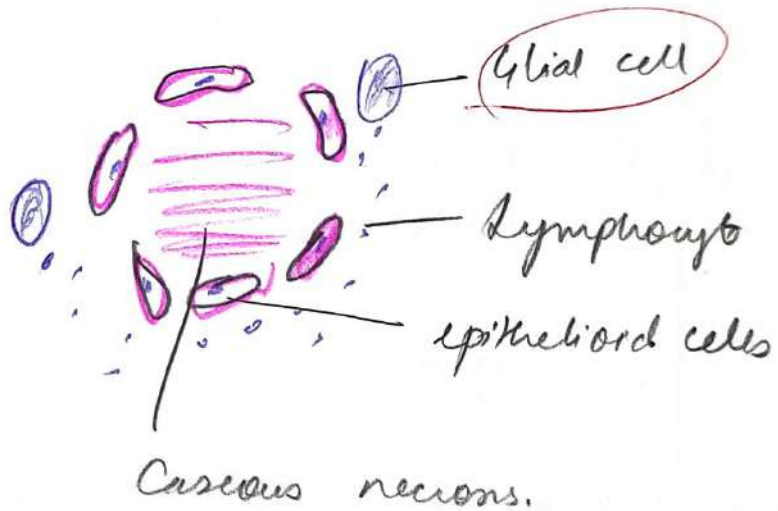 Glial cell
Lymphocyte
epithelioid cells
Caseous necrosis.